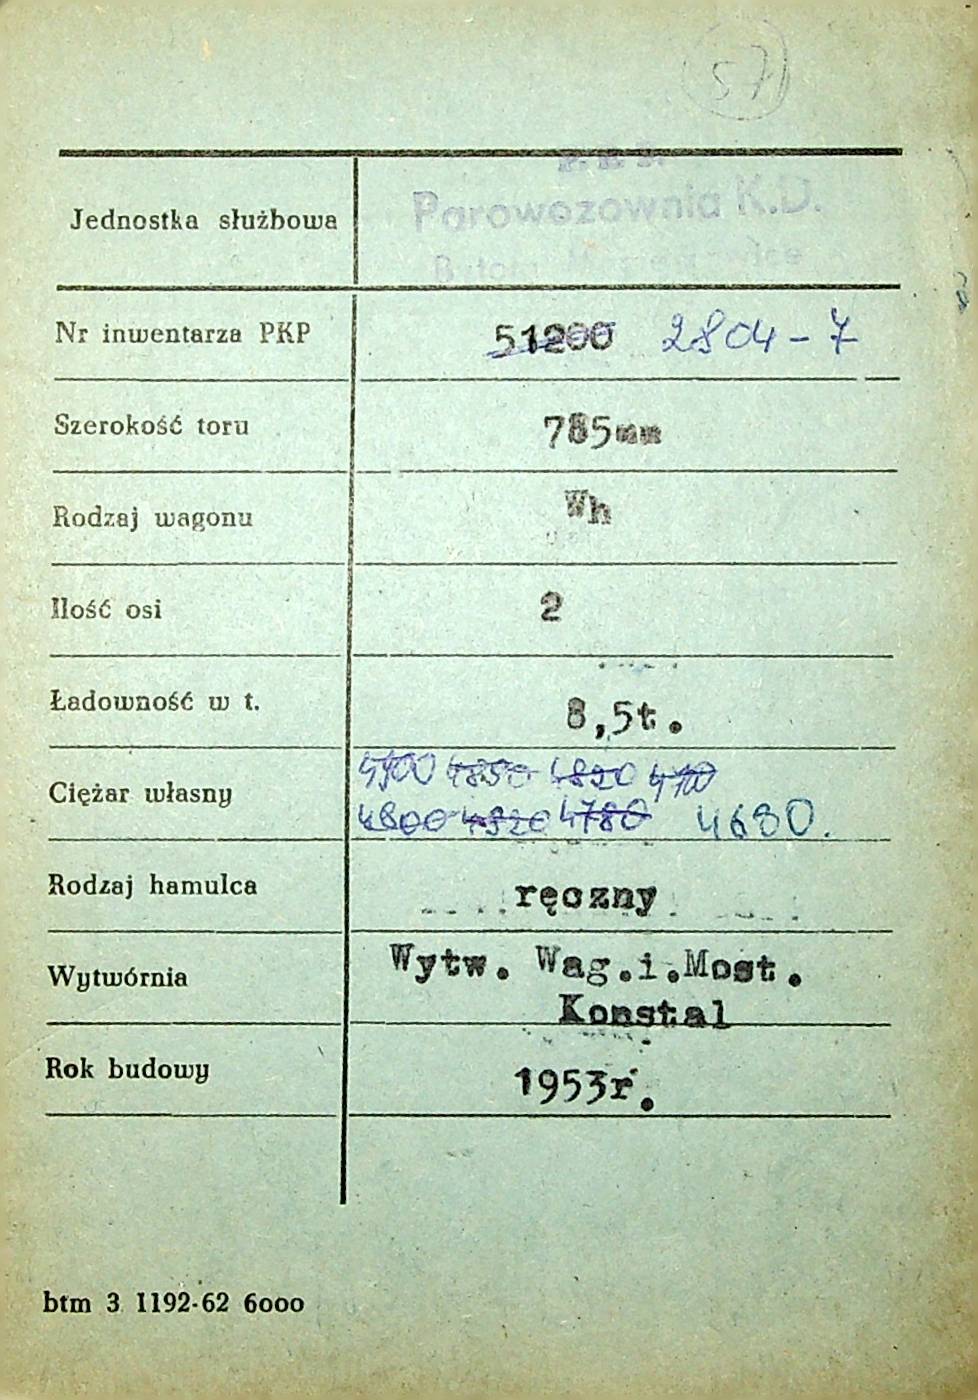 57
Jednostka służbowa
Parowozownia K.D.
Nr inwentarza PKP 51200 2804-7
Szerokość toru 785mm
Rodzaj wagonu Wh
Ilość osi 2
Ładowność w t. 8,5t.
4850 4820
Ciężar własny
4800 4820 4780 4680.
Rodzaj hamulca ręczny
Wytwórnia Wytw. Wag.i.Most.
Konstal
Rok budowy 1953r.
btm 3 1192-62 6000